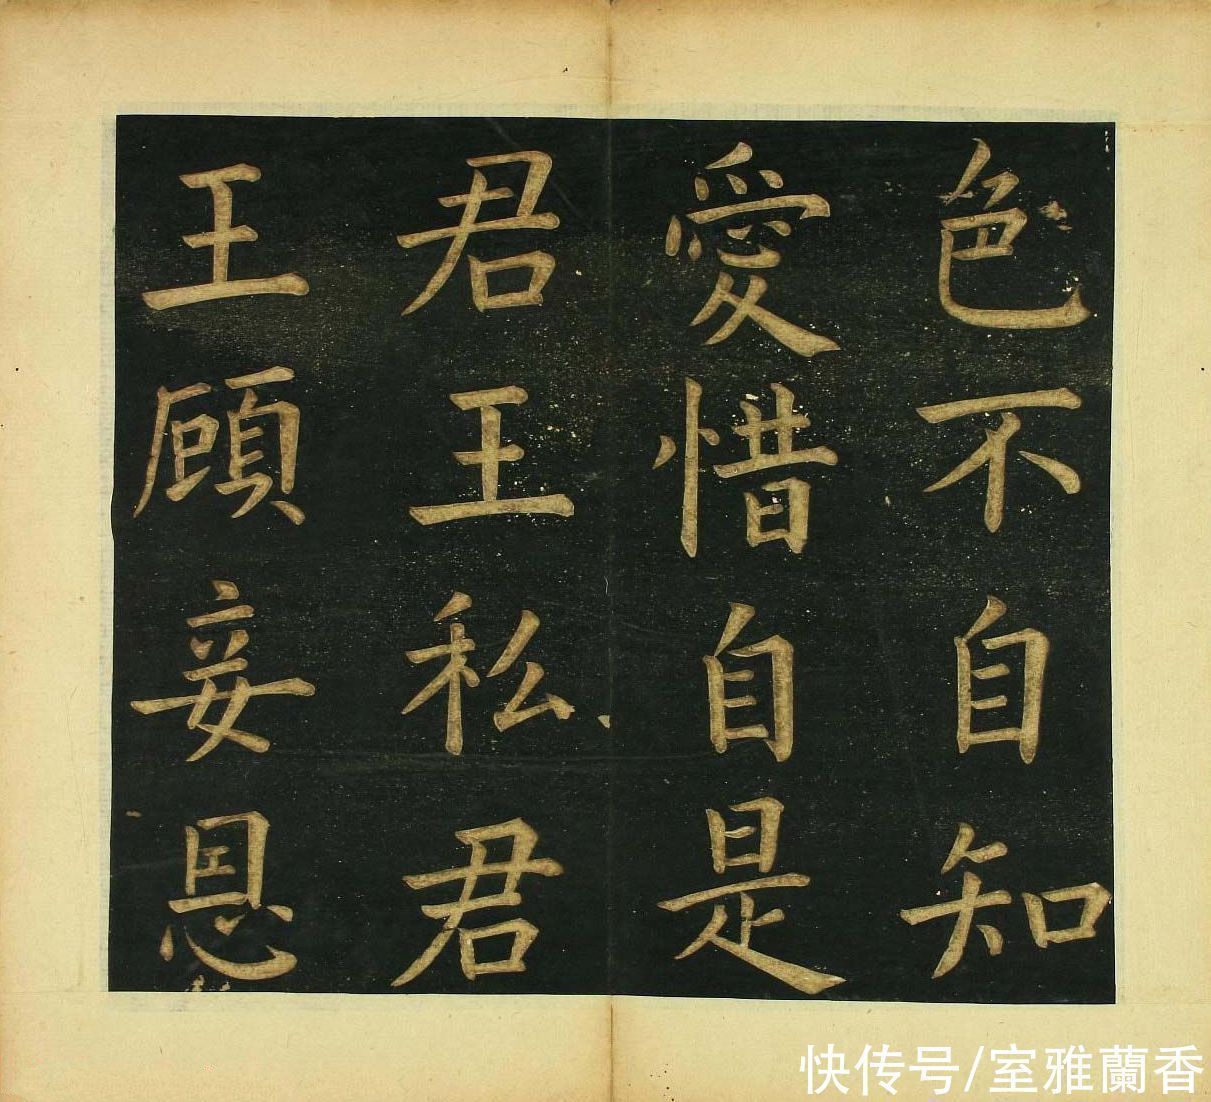 色不自知
愛惜自是
君王私君
王顧妾恩
快传号/室雅蘭香